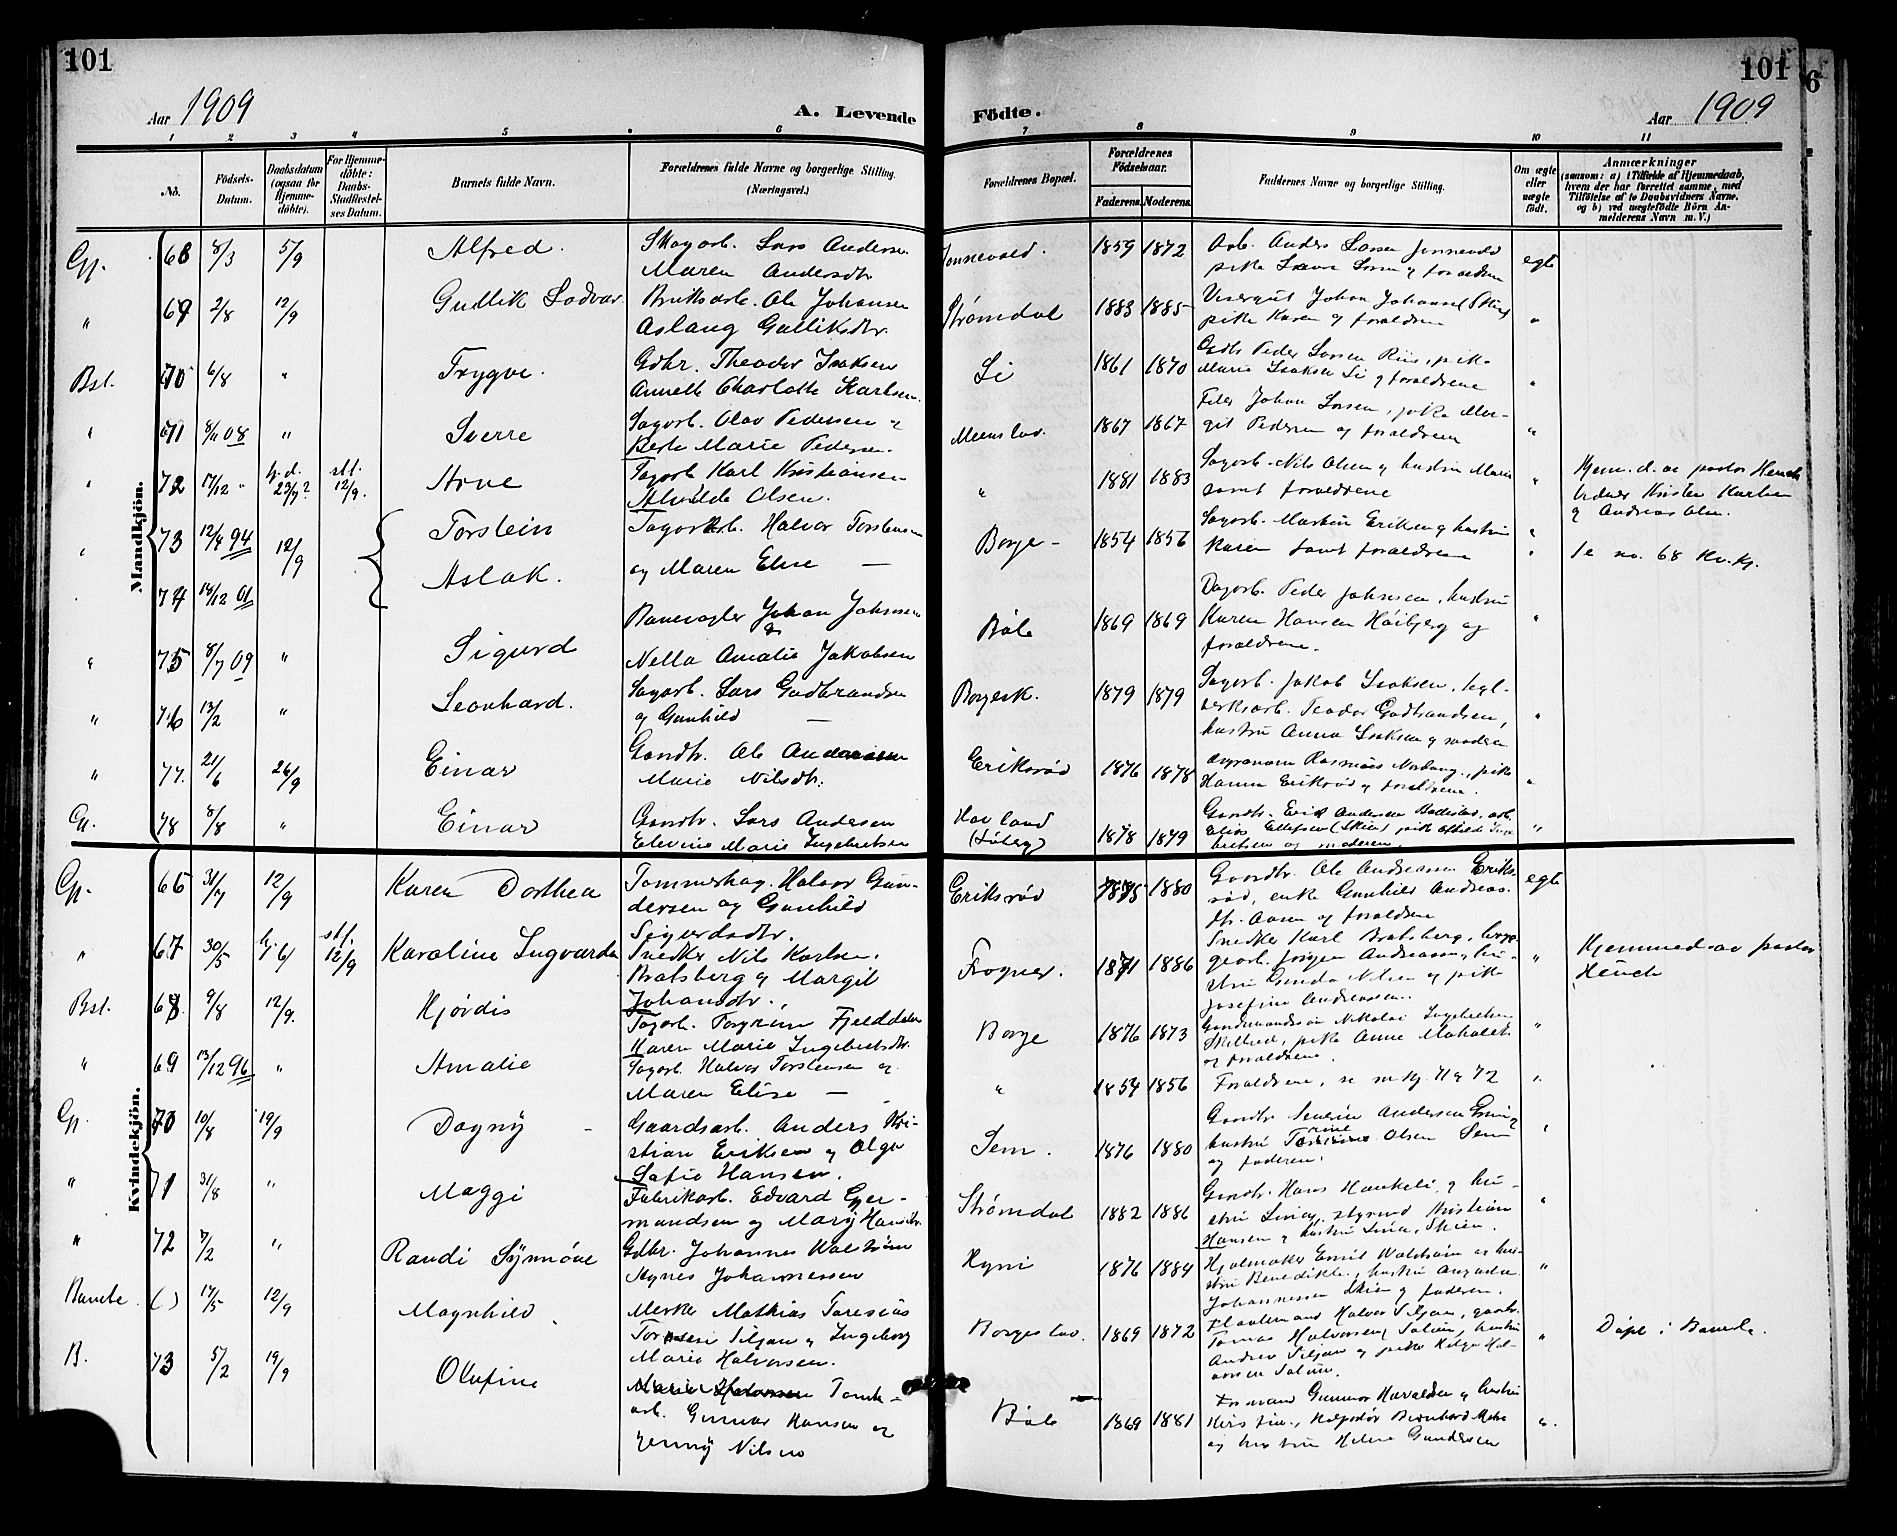 101
101
6
Aar 1909
A. Levende
Födte.
Aar 1909
1 2 3 4 5 6 7 8 9 10 11
No.
Födsels-Datum.
Daabsdatum (ogsaa for Hjemme-döbte).
For Hjemme-döbte: Daabs-Stadfæstel-ses Datum.
Barnets fulde Navn.
Forældrenes fulde Navne og borgerlige Stilling. (Næringsvei.)
Forældrenes Bopæl.
Forældrenes Födselsaar.
Faderens. Moderens.
Faddernes Navne og borgerlige Stilling.
Om ægte eller uægte födt.
Anmærkninger
(saasom: a) i Tilfælde af Hjemmedaab, hvem der har forrettet samme, med Tilföielse af to Daabsvidners Navne, og b) ved uægtefödte Börn An-melderens Navn m. V.)
Mandkjön.
Gp. 68 8/3 5/9 Alfred. Skogarb. Lars Andersen
Maren Andersdtr 1859 1872 Arb. Anders Larsen
og forældrene egte
" 69 2/8 12/9 Gullik Ladvar Bruksarb. Ole Johansen
Aslaug Galliksdtr. Strømdal 1883 1885 Visergut Johan Johansen
pike Karen og forældrene "
Bst. 70 6/8 " Trygve. Gdbr. Theodor Isaksen
Annette Charlotte Karlsen. Li 1861 1870 Peder Larsen Riis, pike
Marie Isaksen Li og forældrene "
" 71 8/11 08 " Sverre Sagarb. Olav Pedersen og
Berte Marie Pedersen. Menstad. 1867 1867 Filer Johan Larsen, pike Mar-
git Pedersen og forældrene "
" 72 17/12 " hj.d. 23/7? stf. 12/9. Arve Sagarb. Karl Kristiansen
Alvilde Olsen. " 1881 1883 Sagarb. Nils Olsen og hustru Marie
samt forældrene " Hjem.d. av pastor Heuch
Vidner Kristen Karlsen
og Andreas Olsen.
" 73 12/4 94 12/9 Torstein Sagarb. Halvor Torstensen
og Maren Elise — Borge - 1854 1856 Sagarb. Martin Eriksen og hustru
Karen samt forældrene " Se no. 68 Kv.kj.
74 14/12 01 Aslak.
" 75 8/7 09 " Sigurd Banevogter Johan Johnsen
&
Nella Amalie Jakobsen Bøle 1869 1869 Dagarb. Peder Johnsen, hustru
Karen Hansen Høibjerg og
forældrene. "
" 76 13/2 " Leonhard. Sagarb. Lars Gudbrandsen
og Gunhild — Borgesk. 1879 1879 Sagarb. Jakob Isaksen, tegl-
verksarb. Teodor Gudbrandsen,
hustru Anna Isaksen og moderen "
" 77. 21/6 26/9 Einar Gaardbr. Ole Andersen
Marie Nilsdtr. Eriksrød 1876 1878 Rasmus pike
Hanna Eriksrød og forældrene. "
Gp. 78 8/8 " Einar Gaardbr. Lars Andersen
Elevine Marie Ingebretsen Havland
1878 1879 Gaardbr. Erik Andersen
Ellefsen (Skien) pike
og moderen. "
Kvindekjön.
Gp. 65 31/7 12/9 Karen Dorthea Tømmerhug. Halvor Gun-
dersen og Gunhild
Sigurdsdtr. Eriksrød 1875 1880 Gaardbr. Ole Andreassen Eriks-
rød, enke Gunhild Andreas-
dtr. Aasen og forældrene egte
" 67 30/5 hj. 6/ stf. 12/9 Karoline Ingvarda Snedker Nils Karlsen
Bratsberg og Margit
Johansdtr. Frogner. 1871 1886 Snedker Karl Bratsberg,
Jørgen Andreassen, hu-
stru Gunda Nilsen og pike
Josefine Andreassen. " Hjemmed. av pastor
Heuch
Bst. 68. 9/8 12/9. Hjørdis Sagarb. Torgrim Fjelddalen
Karen Marie Ingebretsdtr. Borge 1876 1873 Gaardmandssøn Nikolai Ingebretsen
pike Anne
og forældrene. "
" 69 13/12 96 " Amalie Sagarb. Halvor Torstensen og
Maren Elise — " 1854 1856 Forældrene, se m.kj. 71 og 72 "
Gp. 70 10/8 19/9 Dagny Gaardsarb. Anders Kri-
stian Eriksen og Olga
Sofie Hansen. Sem. 1876 1880 Gaardbr. Severin Andersen
hustru Olsen Sem
og faderen. "
" 71 31/8 " Maggi Fabrikarb. Edvard Gjer-
mundsen og Mary Hansdtr. Strømdal 1882 1886 Gaardbr. Hans og hu-
stru Lina, styrmd Kristian
Hansen og hustru Lina, Skien. "
" 72 7/2 " Randi Synnøve Gdbr. Johannes Walstrøm
Agnes Johannessen 1876 1884 Emil Walstrøm og hus-
tru Benedikte, hustru
Johannessen Skien og faderen. "
Bamble. ( ) 17/5 12/9 Magnhild. Merker Mathias
Siljan og Ingeborg
Marie Halvorsen. Borgestad. 1869 1872 Halvor Siljan, gaardbr.
Tomas Halvorsen Solum, hustru
Andrea Siljan og pike Helga Hal-
vorsen Solum. " Døpt i Bamble.
B. 73 5/2 19/9 Olufine Tomte-
arb. Gunnar Hansen og
Jenny Nilsen Bøle 1869 1881 Formand Gunnar Haraldsen og hustru
Kirstine, Bernhard
og hustru Helene Gundersen "